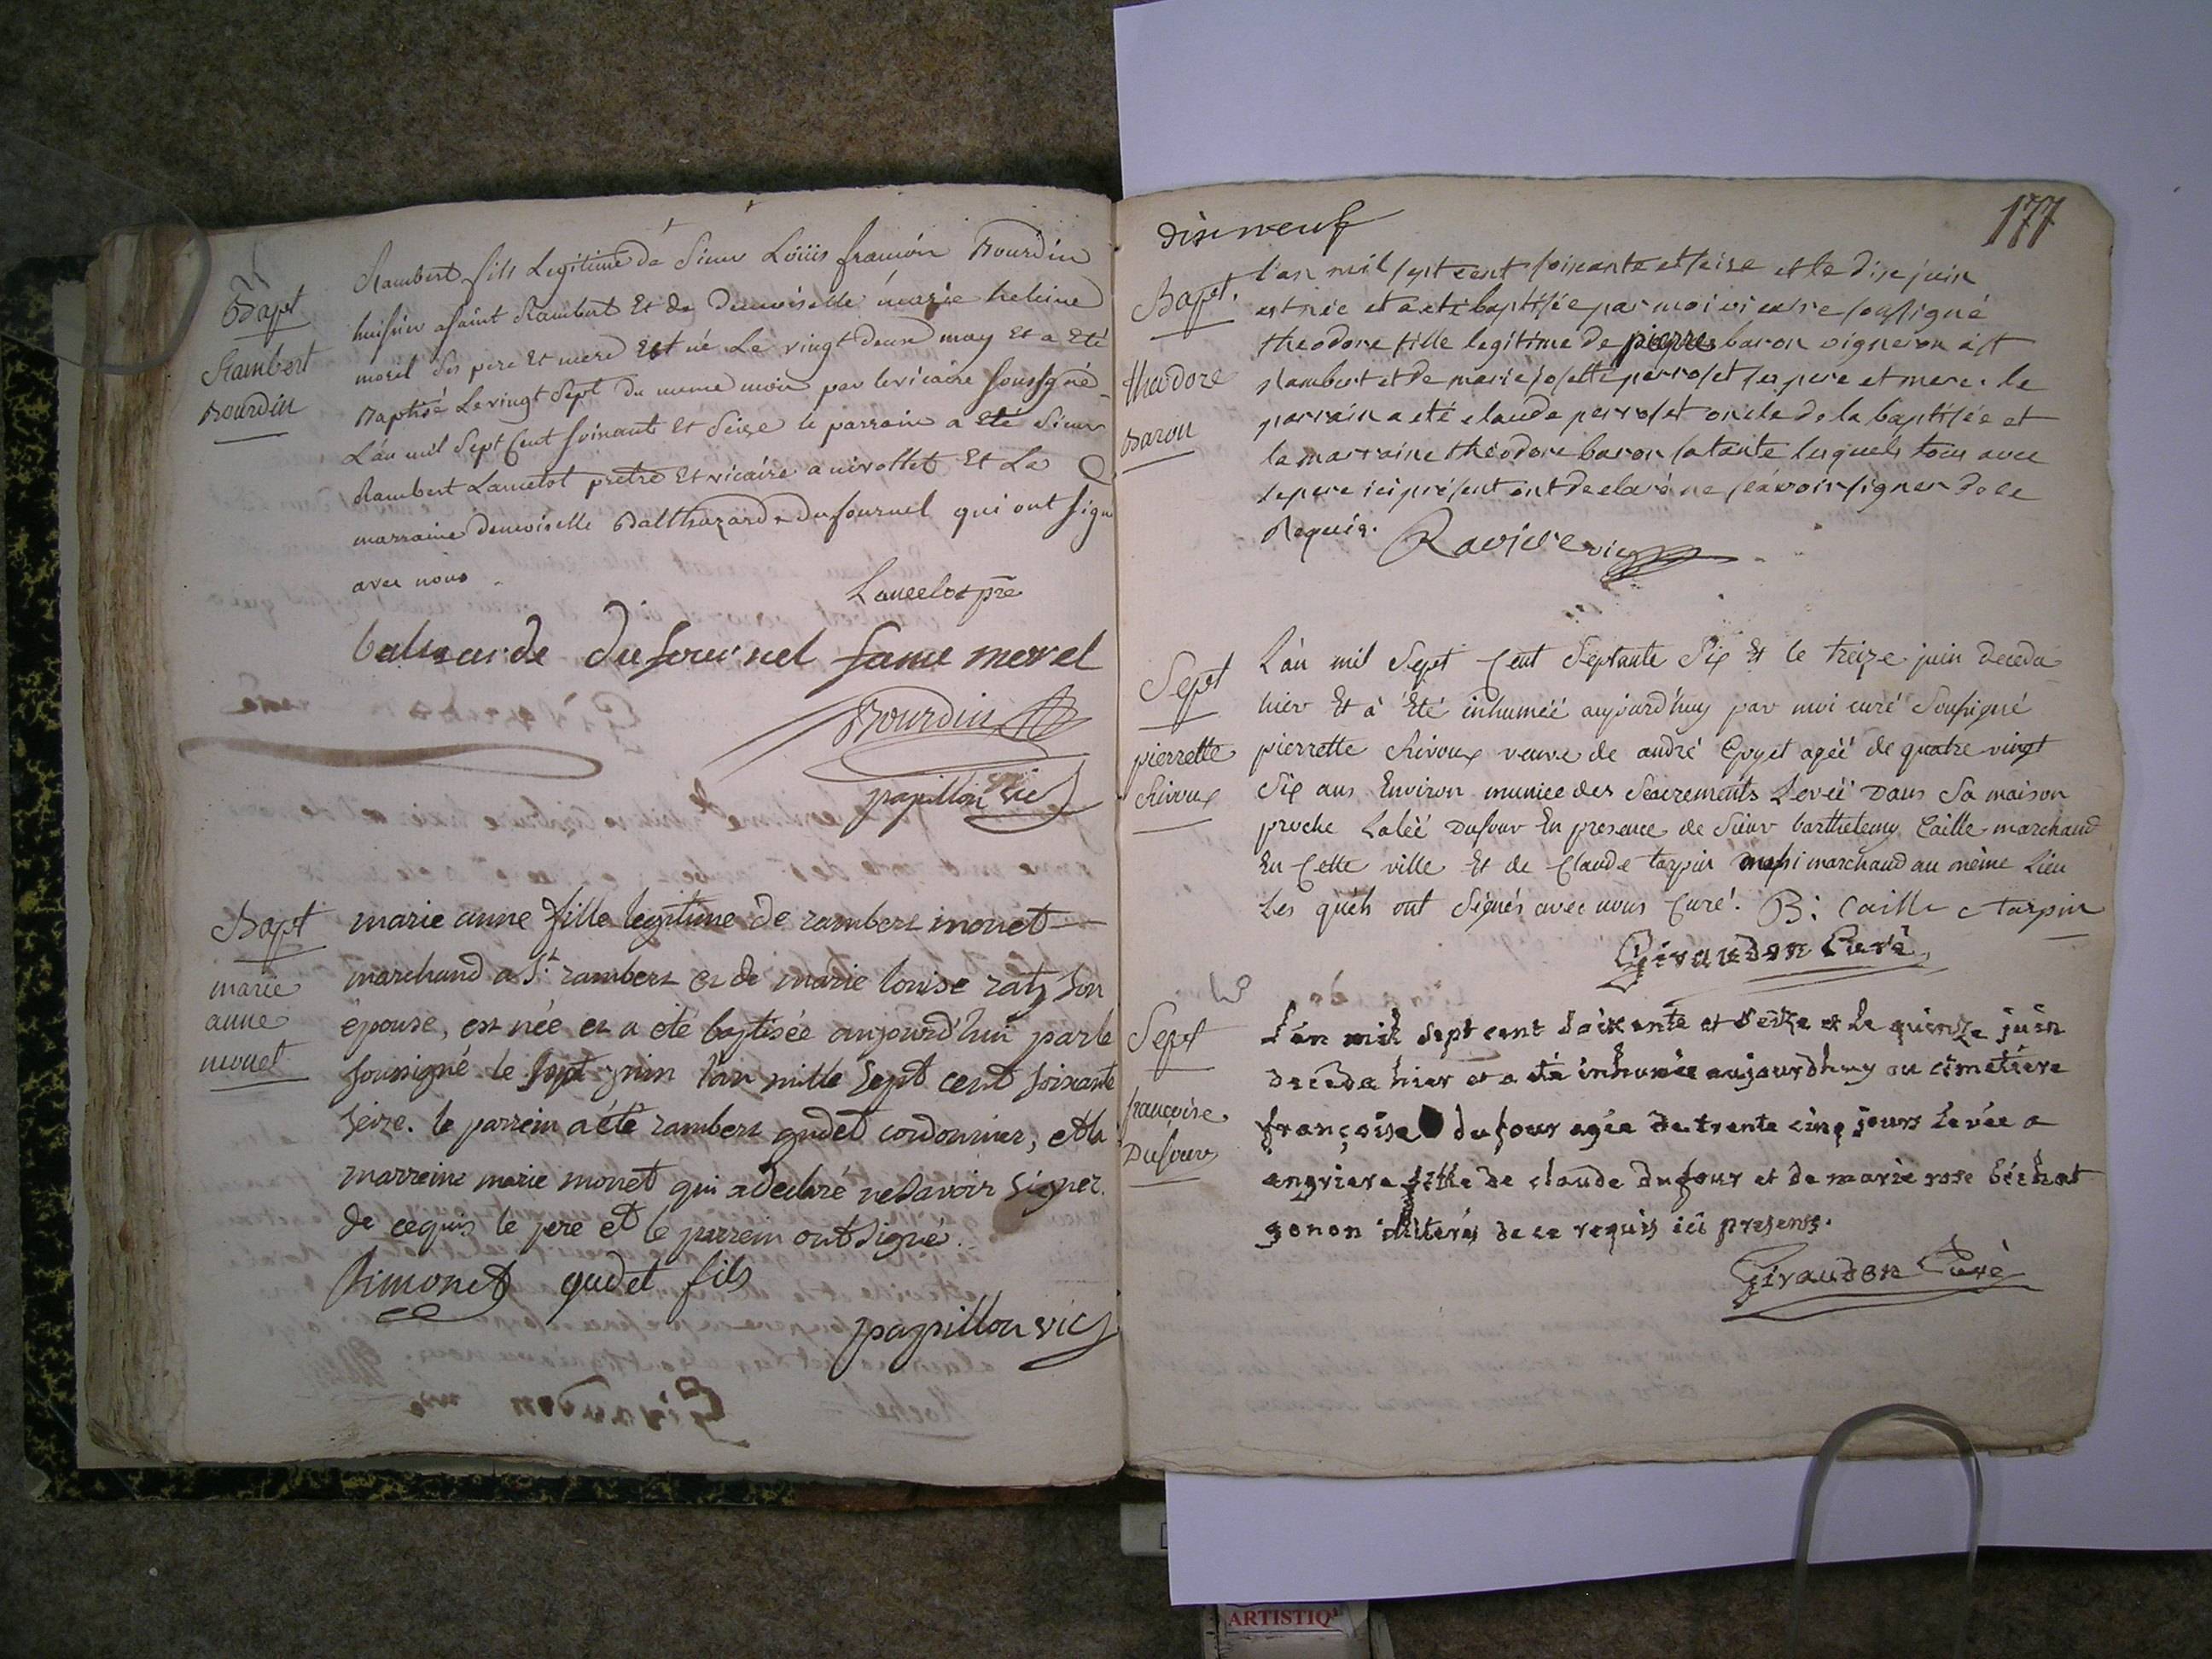 Bapt
Rambert
Bourdin
Rambert fils Legitime de Sieur Loüis francoin Bourdin
huissier a saint Rambert Et de Demoiselle marie heleine
morel ses pere Et mere Est né Le vingt deux may Et a Eté
Baptisé Le vingt Sept du meme mois par le vicaire soussigné
L'an mil Sept Cent soixante Et Seize le parrain a Eté Sieur
Rambert Lancelot pretre Et vicaire a nivollet Et La
marraine demoiselle Balthazarde dufournel qui ont signé
avec nous
Lancelot pre
baltazarde dufournel fame morel
Bourdin
papillon vic
Bapt
marie
anne
monet
marie anne fille legitime de rambert monet
marchand a St rambert et de marie louise ratz son
épouse, est née et a eté baptisée aujourd'hui par le
soussigné le sept juin l'an mille sept cent soixante
seize. le parrein a été rambert gudet cordonnier, et la
marreine marie monet qui a declaré ne savoir signer
de ce quis le pere et le parrein ont signé.
Rimonet gudet fils
papillon vic
dix neuf
177
Bapt.
theodore
Baron
l'an mil sept cent soixante et seize et le dix juin
est née et a eté baptisée par moi vicaire soussigné
theodore fille legitime de pierre baron vigneron a st
rambert et de marie josette perroset ses pere et mere. le
parrain a eté claude perroset oncle de la baptisée et
la marraine théodore baron sa tante lesquels tous avec
le pere ici présent ont declaré ne sçavoir signer de ce
Requis. Raviere vic
Sept
pierrette
Rivoux
L'an mil Sept Cent Septante Six Et le treize juin deceda
hier Et à Eté inhumée aujourd'huy par moi curé Soussigné
pierrette Rivoux veuve de andré Goyet agéé de quatre vingt
Six ans Environ muniée des Seacrements Levéé Dans Sa maison
proche Laléé Dufour En presence de Sieur barthelemy Caille marchand
En Cette ville Et de Claude tarpin aussi marchand au même Lieu
Les quels ont Signés avec nous Curé. B: Caille C tarpin
Giraudon Curé
Sept
françoise
Dufour
L'an mil sept cent soixante et seize et le quinze juin
deceda hier et a été inhumée aujourdhuy au cimetiere
françoise dufour agée de trente cinq jours levée a
angriere fille de claude dufour et de marie rose béchat
gonon illiterés de ce requis ici presens.
Giraudon Curé
ARTISTIQ